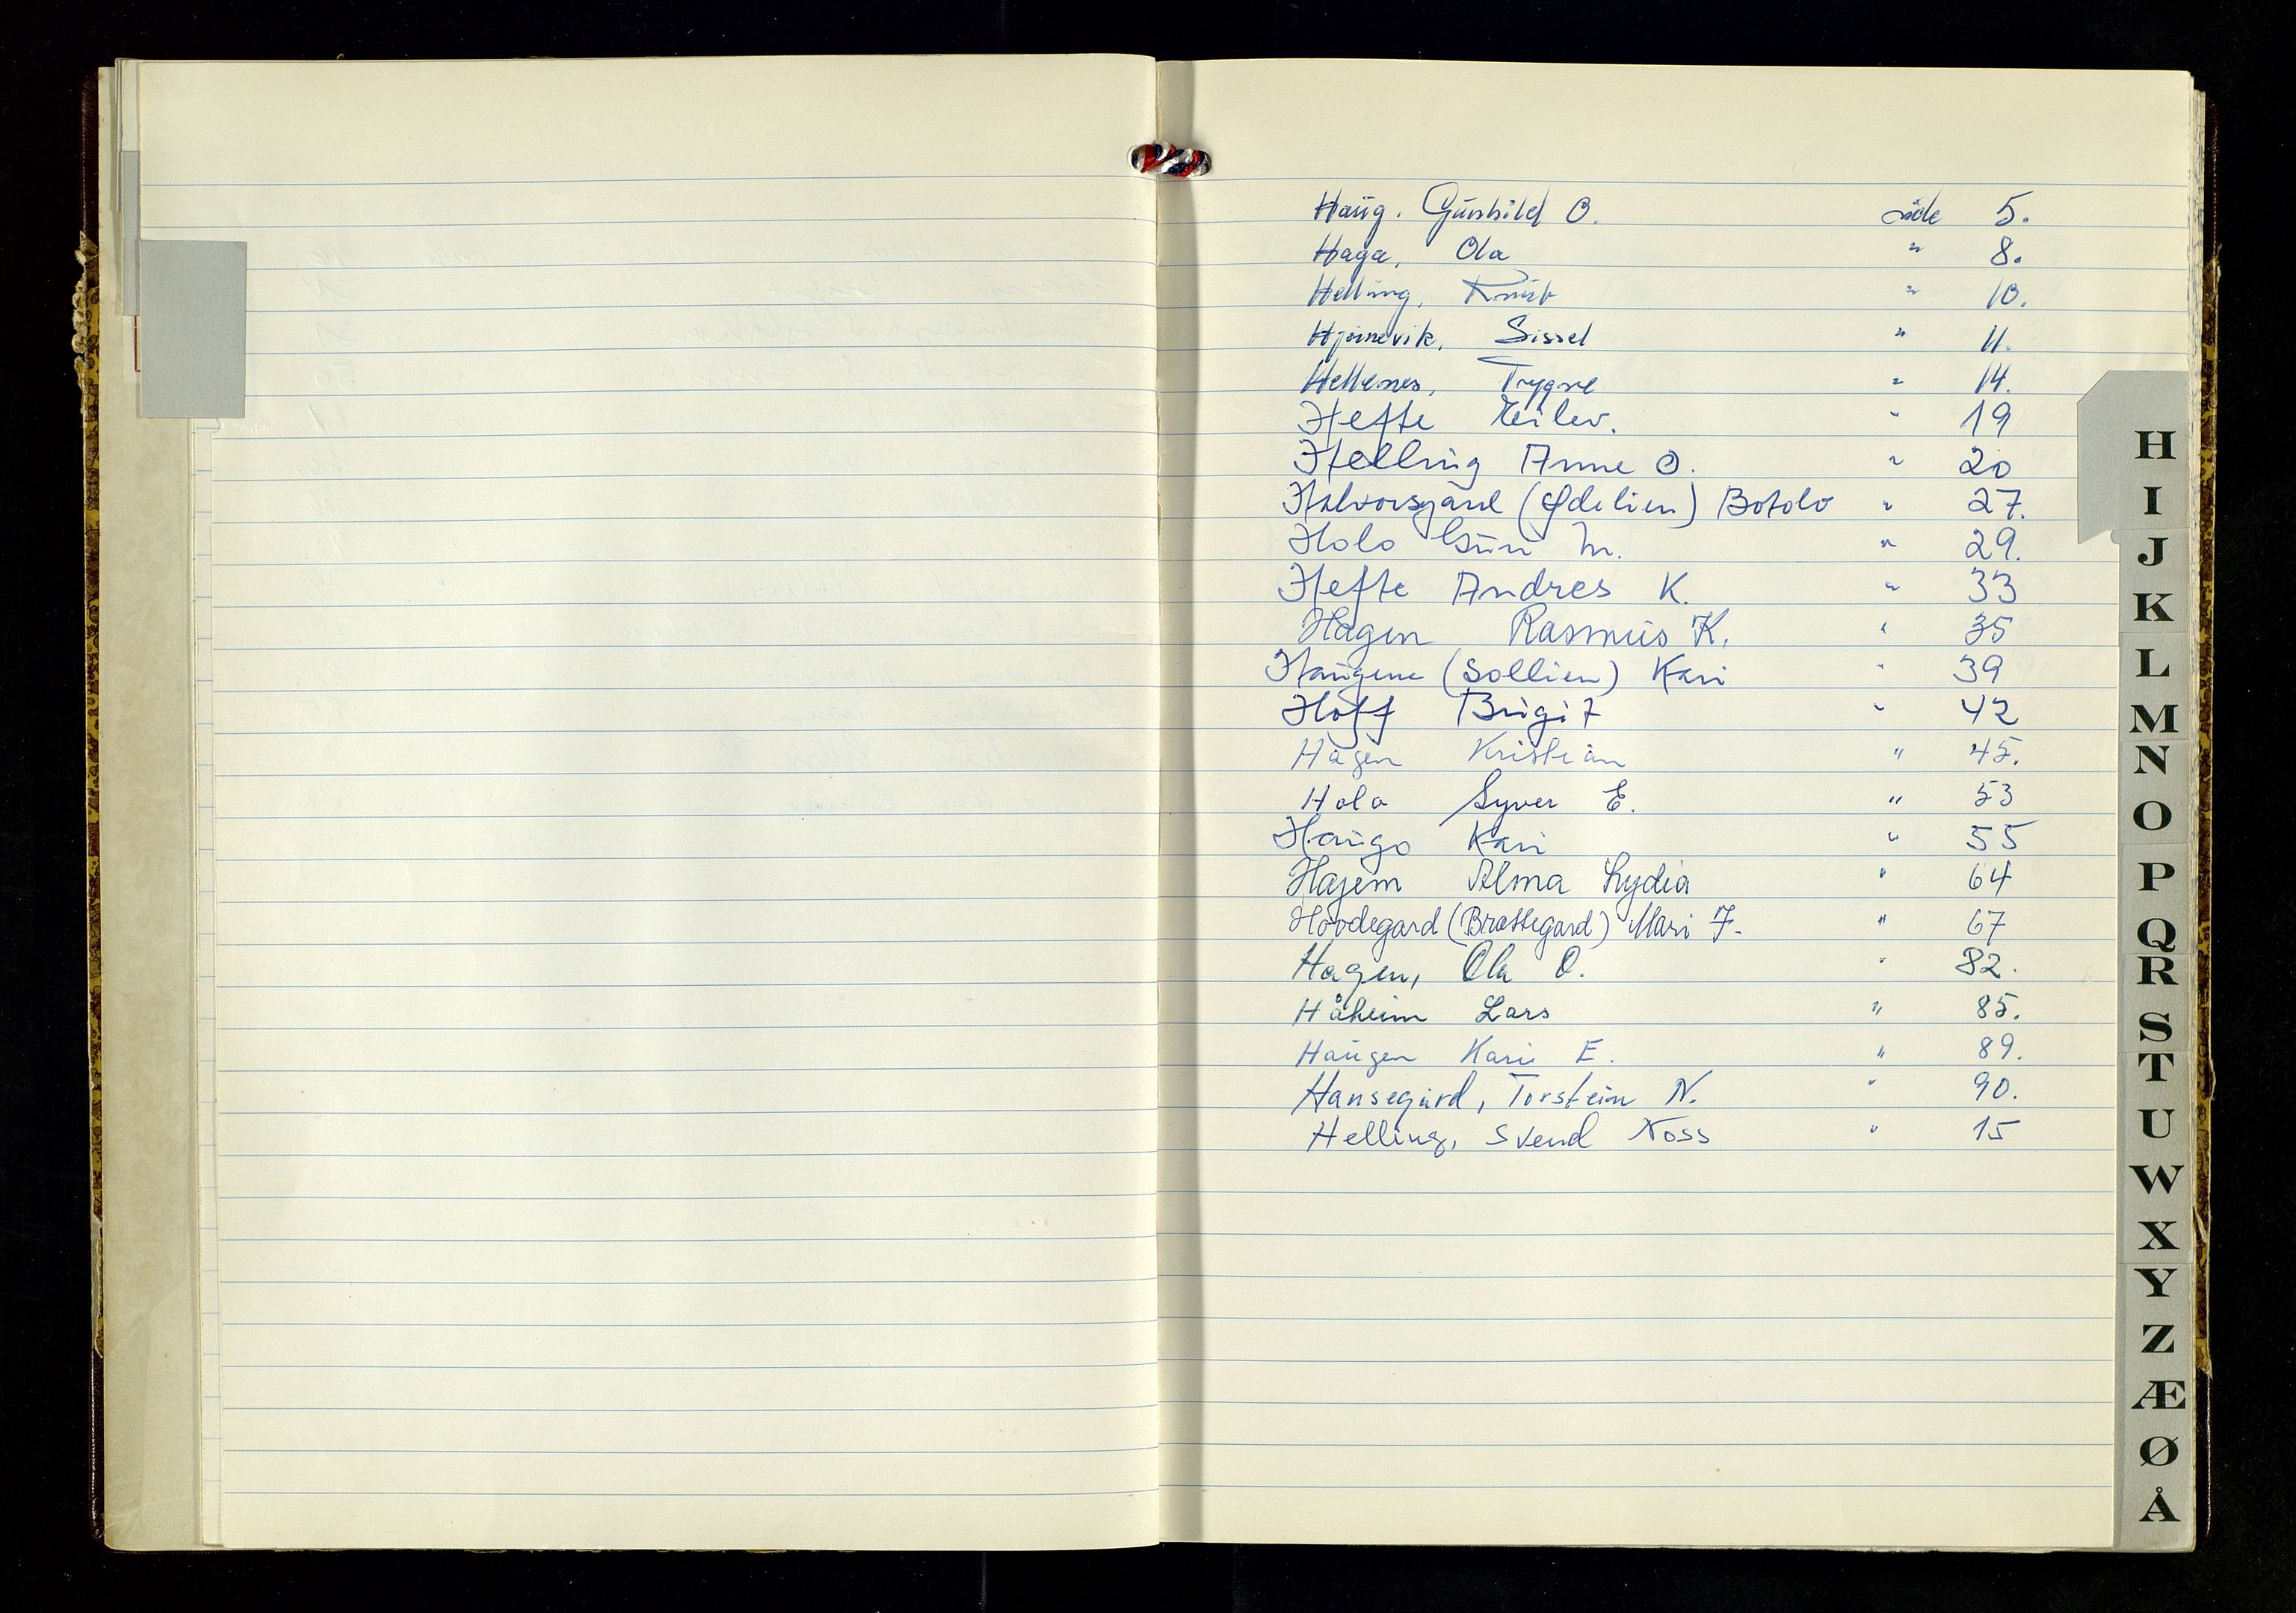 Haug. Gunhild O. side 5.
Haga, Ola " 8.
Helling, Knut " 10.
Hjörnevik, Sissel " 11.
Hellenes, Trygve " 14.
Hefte Eilev. " 19
Helling Anne O. " 20
Halvorsgård (Ødelien) Botolv " 27.
Holo Guri M. " 29.
Hefte Andres K. " 33
Hagen Rasmus K. " 35
Haugene (Sollien) Kari " 39
Hoff Birgit " 42
Hagen Kristian " 45.
Holo Syver E. " 53
Haugo Kari " 55
Hajem Alma Lydia " 64
Hovdegard (Brattegard) Mari F. " 67
Hagen, Ola O. " 82.
Håheim Lars " 85.
Haugen Kari E. " 89.
Hansegård, Torstein N. " 90.
Helling, Svend Noss " 15
H
I
J
K
L
M
N
O
P
Q
R
S
T
U
W
X
Y
Z
Æ
Ø
Å